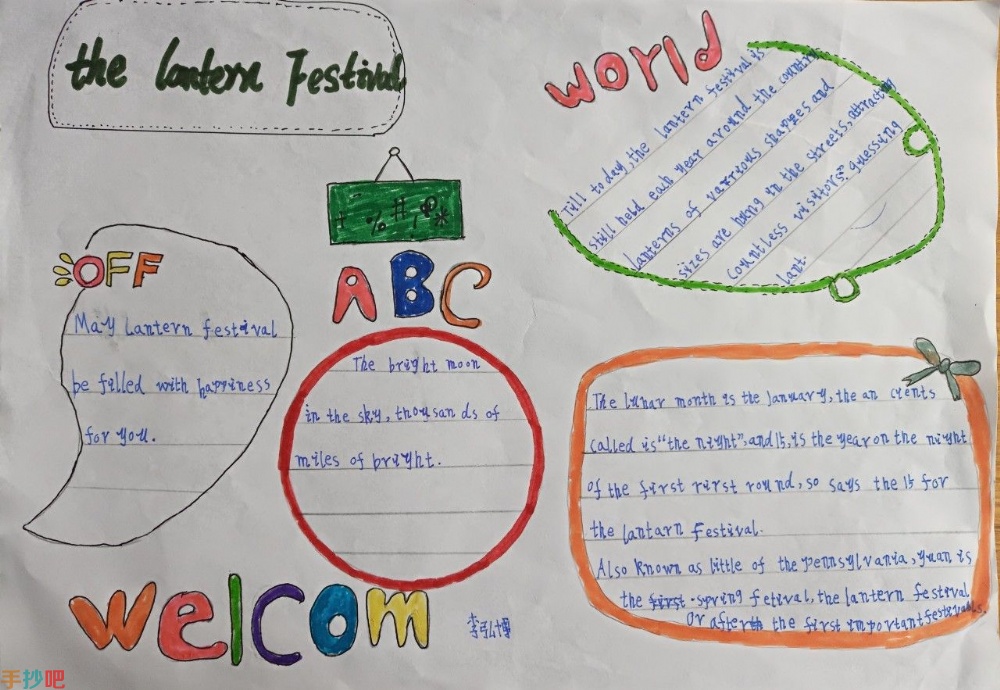 the Lantern Festival
world
Till to day, the lantern festival is
still held each year around the country
lanterns of varrious shapges and
sizes are hung in the streets, attracting
countless visitors." guessing
lant.
OFF
May Lantern festival
be filled with happiness
for you.
+ - % # , *
ABC
The bright moon
in the sky, thousan ds of
miles of bright.
The lunar month is the January, the an cients
called is "the night", and 15, is the year on the night
of the first rirst round, so says the 15 for
the lantarn Festival.
Also known as little of the pennsylvania, yuan is
the first spring fetival, the lantern festival
Or afterth the first important festivals.
Welcom
李弘博
手抄吧